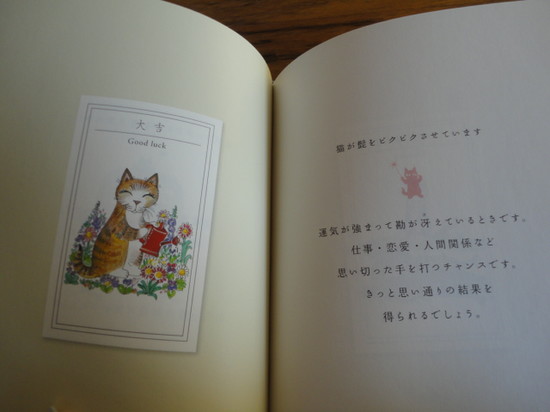 大吉
Good luck
猫が髭をピクピクさせています
運気が強まって勘が冴えているときです。
仕事・恋愛・人間関係など
思い切った手を打つチャンスです。
きっと思い通りの結果を
得られるでしょう。